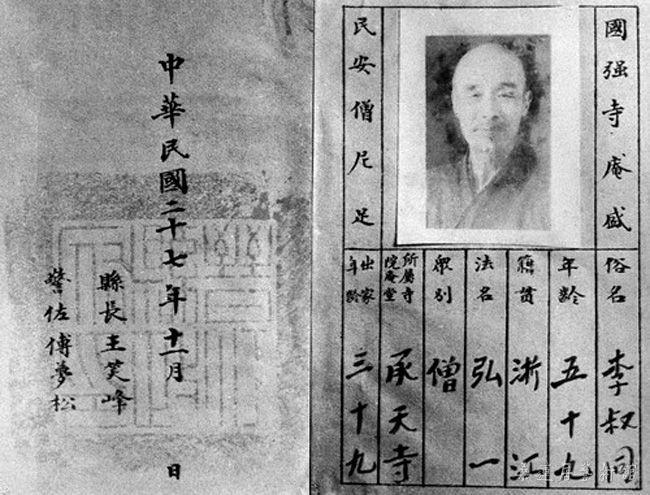 國强寺庵盛
民安僧尼足
俗名 李叔同
年齡 五十九
籍貫 浙江
法名 弘一
眾別 僧
所屬寺
院庵堂 承天寺
出家
年齡 三十九
中華民國二十七年十一月 日
縣長王笑峰
警佐傅夢松